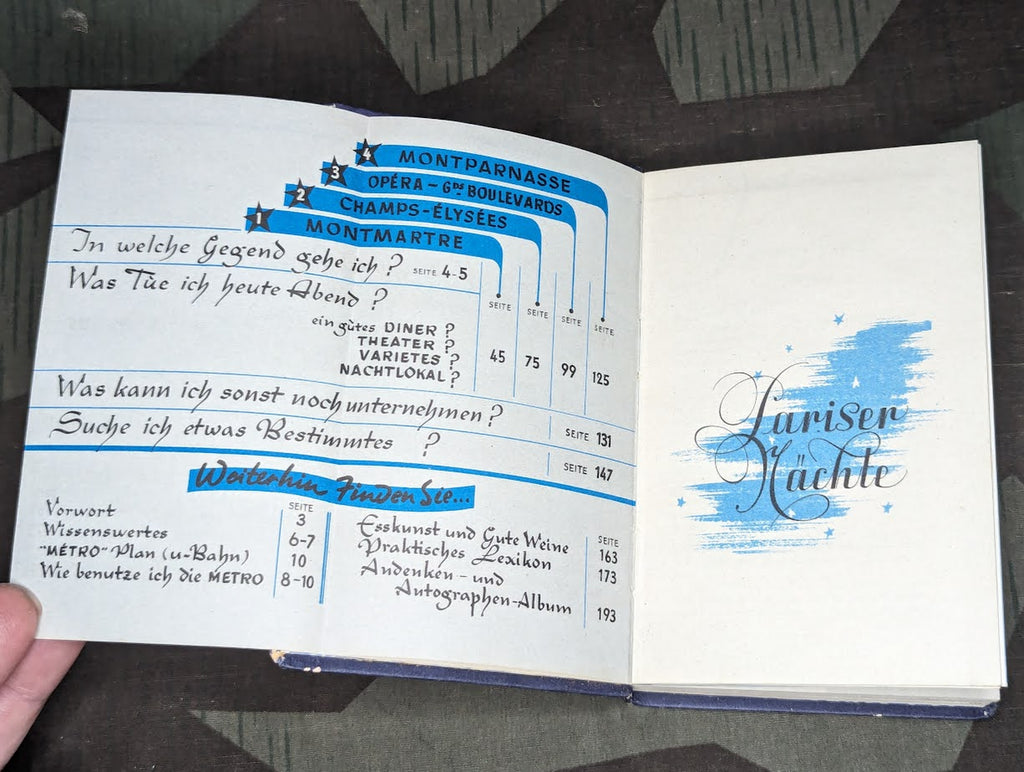 4 MONTPARNASSE
3 OPÉRA – Gds BOULEVARDS
2 CHAMPS-ÉLYSÉES
1 MONTMARTRE
In welche Gegend gehe ich? SEITE 4-5
Was Tùe ich heute Abend ?
SEITE SEITE SEITE SEITE
ein gùtes DINER ?
THEATER ?
VARIETES ?
NACHTLOKAL ?
45 75 99 125
Was kann ich sonst noch unternehmen ? SEITE 131
Suche ich etwas Bestimmtes ? SEITE 147
Weiterhin Finden Sie...
SEITE
Vorwort 3
Wissenswertes 6-7
"MÉTRO" Plan (u-Bahn) 10
Wie benutze ich die METRO 8-10
SEITE
Esskunst und Gute Weine 163
Praktisches Lexikon 173
Andenken - und
Autographen-Album 193
Pariser
Nächte